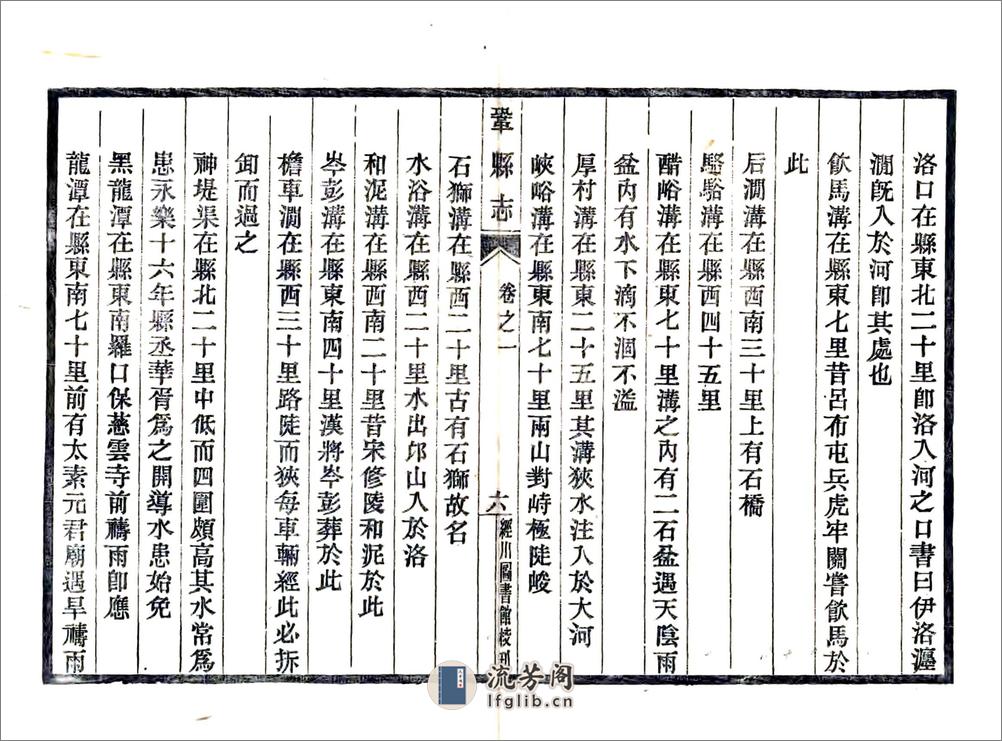 洛口在縣東北二十里卽洛入河之口書曰伊洛瀍
澗旣入於河卽其處也
飮馬溝在縣東七里昔呂布屯兵虎牢關嘗飮馬於
此
后澗溝在縣西南三十里上有石橋
騷駱溝在縣西四十五里
醋峪溝在縣東七十里溝之內有二石盆遇天陰雨
盆內有水下滴不涸不溢
厚村溝在縣東二十五里其溝狹水注入於大河
峽峪溝在縣東南七十里兩山對峙極陡峻
鞏縣志
卷之一
六
經川圖書館校刊
石獅溝在縣西二十里古有石獅故名
水浴溝在縣西二十里水出邙山入於洛
和泥溝在縣西南二十里昔宋修陵和泥於此
岑彭溝在縣東南四十里漢將岑彭葬於此
檐車澗在縣西三十里路陡而狹每車輛經此必拆
卸而過之
神堤渠在縣北二十里中低而四圍頗高其水常爲
患永樂十六年縣丞華胥爲之開導水患始免
黑龍潭在縣東南羅口保慈雲寺前禱雨卽應
龍潭在縣東南七十里前有太素元君廟遇旱禱雨
流芳阁
lfglib.cn